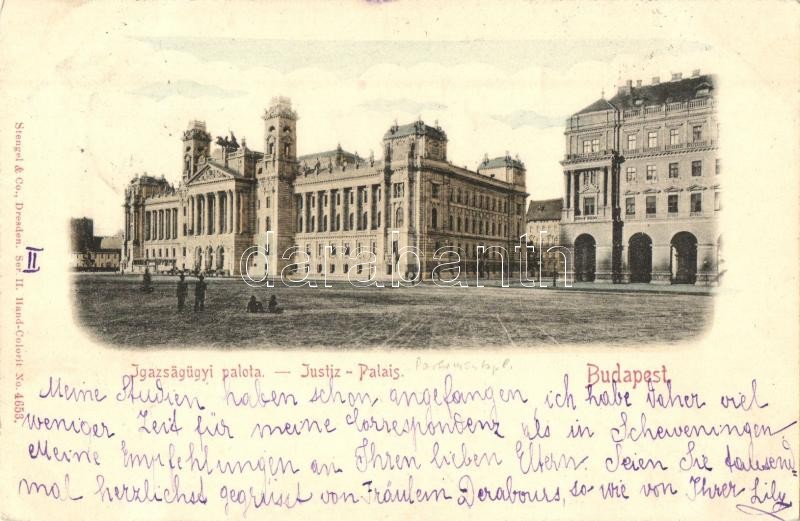 Stengel & Co., Dresden. Ser. II. Hand-Colorit No. 4653.
II
darabanth
Igazságügyi palota. — Justiz-Palais.
Parlamentspl.
Budapest.
Meine Studien haben schon angefangen, ich habe daher viel
weniger Zeit für meine Correspondenz als in Scheweningen.
Meine Empfehlungen an Ihren lieben Eltern. Seien Sie tausend
mal herzlichst gegrüsst von Fräulein Derabours, so wie von Ihrer Lily